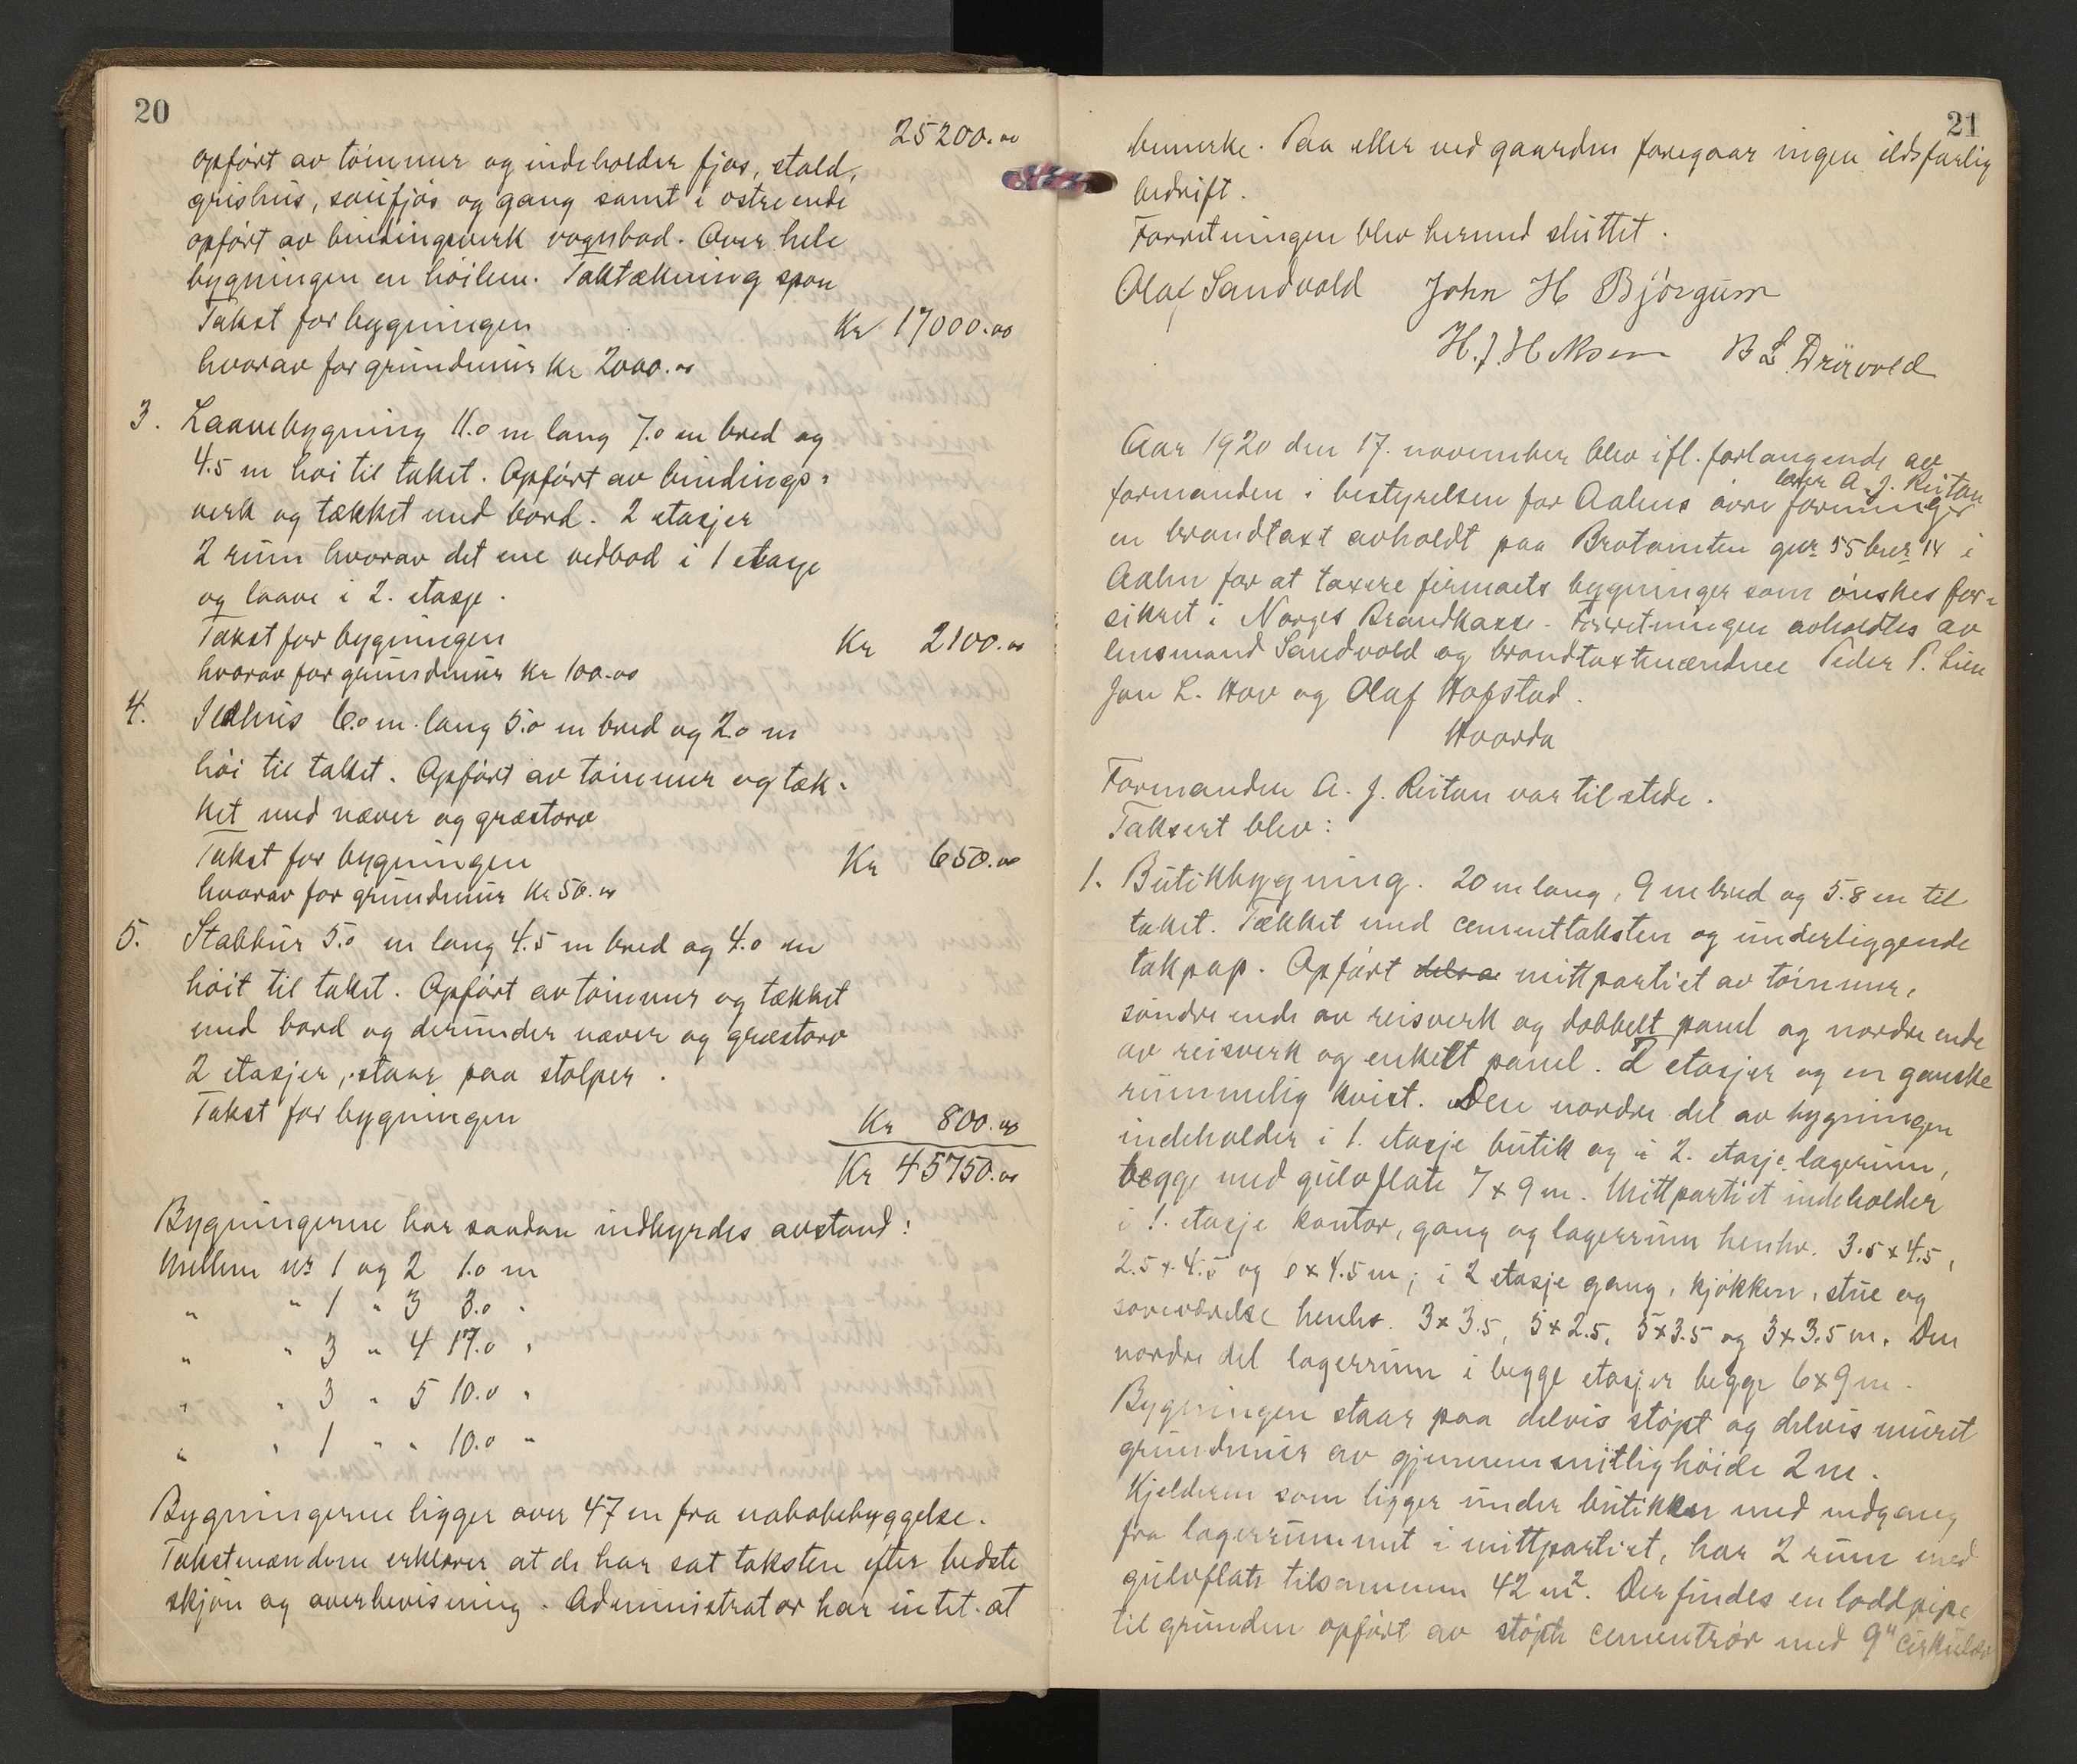 20
25200.00
opført av tømmer og indeholder fjøs, stald,
grishus, saufjøs og gang samt i østre ende
opført av bindingsverk vognbod. Over hele
bygningen en høilem. Taktækning spon
Takst for bygningen Kr 17000.00
hvorav for grundmur kr 2000.00
3. Laavebygning 11.0 m lang 7.0 m bred og
4.5 m høi til taket. Opført av bindings-
verk og tækket med bord. 2 etasjer
2 rum hvorav det ene vedbod i 1 etasje
og laave i 2. etasje.
Takst for bygningen Kr 2100.00
hvorav for grundmur kr 100.00
4. Ildhus 6.0 m lang 5.0 m bred og 2.0 m
høi til taket. Opført av tømmer og tæk-
ket med næver og græstorv
Takst for bygningen Kr 650.00
hvorav for grundmur kr 50.00
5. Stabbur 5.0 m lang 4.5 m bred og 4.0 m
høit til taket. Opført av tømmer og tækket
med bord og derunder næver og græstorv
2 etasjer, staar paa stolper.
Takst for bygningen
Kr 800.00
Kr 45750.00
Bygningerne har saadan indbyrdes avstand:
Mellem nr 1 og 2 1.0 m
" " 1 " 3 8.0 "
" " 3 " 4 17.0 "
" " 3 " 5 10.0 "
" " 1 " " 10.0 "
Bygningerne ligger over 47 m fra nabobebyggelse.
Takstmændene erklærer at de har sat taksten efter bedste
skjøn og overbevisning. Administrator har intet at
21
bemerke. Paa eller ved gaarden foregaar ingen ildsfarlig
bedrift.
Forretningen blev hermed sluttet.
Olaf Sandvold John H Bjørgum
H. J. B L Drivvold
Aar 1920 den 17. november blev ifl. forlangende av
lærer A. J. Reitan
formanden i bestyrelsen for Aalens øvre
en brandtaxt avholdt paa Brotomten gnr 55 bnr 14 i
Aalen for at taxere firmaets bygninger som ønskes for-
sikret i Norges Brandkasse. Forretningen avholdtes av
lensmand Sandvold og brandtaxtmændene Peder P. Lien
Jon L. Hov og Olaf Hofstad.
Hvorda
Formanden A. J. Reitan var tilstede.
Taksert blev:
1. Butikbygning. 20 m lang, 9 m bred og 5.8 m til
taket. Tækket med cementtaksten og underliggende
takpap. Opført delvis midtpartiet av tømmer,
søndre ende av reisverk og dobbelt panel og nordre ende
av reisverk og enkelt panel. 2 etasjer og en ganske
rummelig kvist. Den nordre del av bygningen
indeholder i 1. etasje butik og i 2. etasje lagerrum,
begge med gulvflate 7 x 9 m. Mittpartiet indeholder
i 1. etasje kontor, gang og lagerrum henhv. 3.5 x 4.5,
2.5 x 4.5 og 6 x 4.5 m; i 2 etasje gang, kjøkken, stue og
soveværelse henhv. 3 x 3.5, 5 x 2.5, 5 x 3.5 og 3 x 3.5 m. Den
nordre del lagerrum i begge etasjer begge 6 x 9 m.
Bygningen staar paa delvis støpt og delvis muret
grundmur av gjennemsnitlig høide 2 m.
Kjelderen som ligger under butikken med nedgang
fra lagerrummet i mittpartiet, har 2 rum med
gulvflate tilsammen 42 m². Der findes en loddpipe
til grunden opført av støpte cementrør med 9" cirkulær